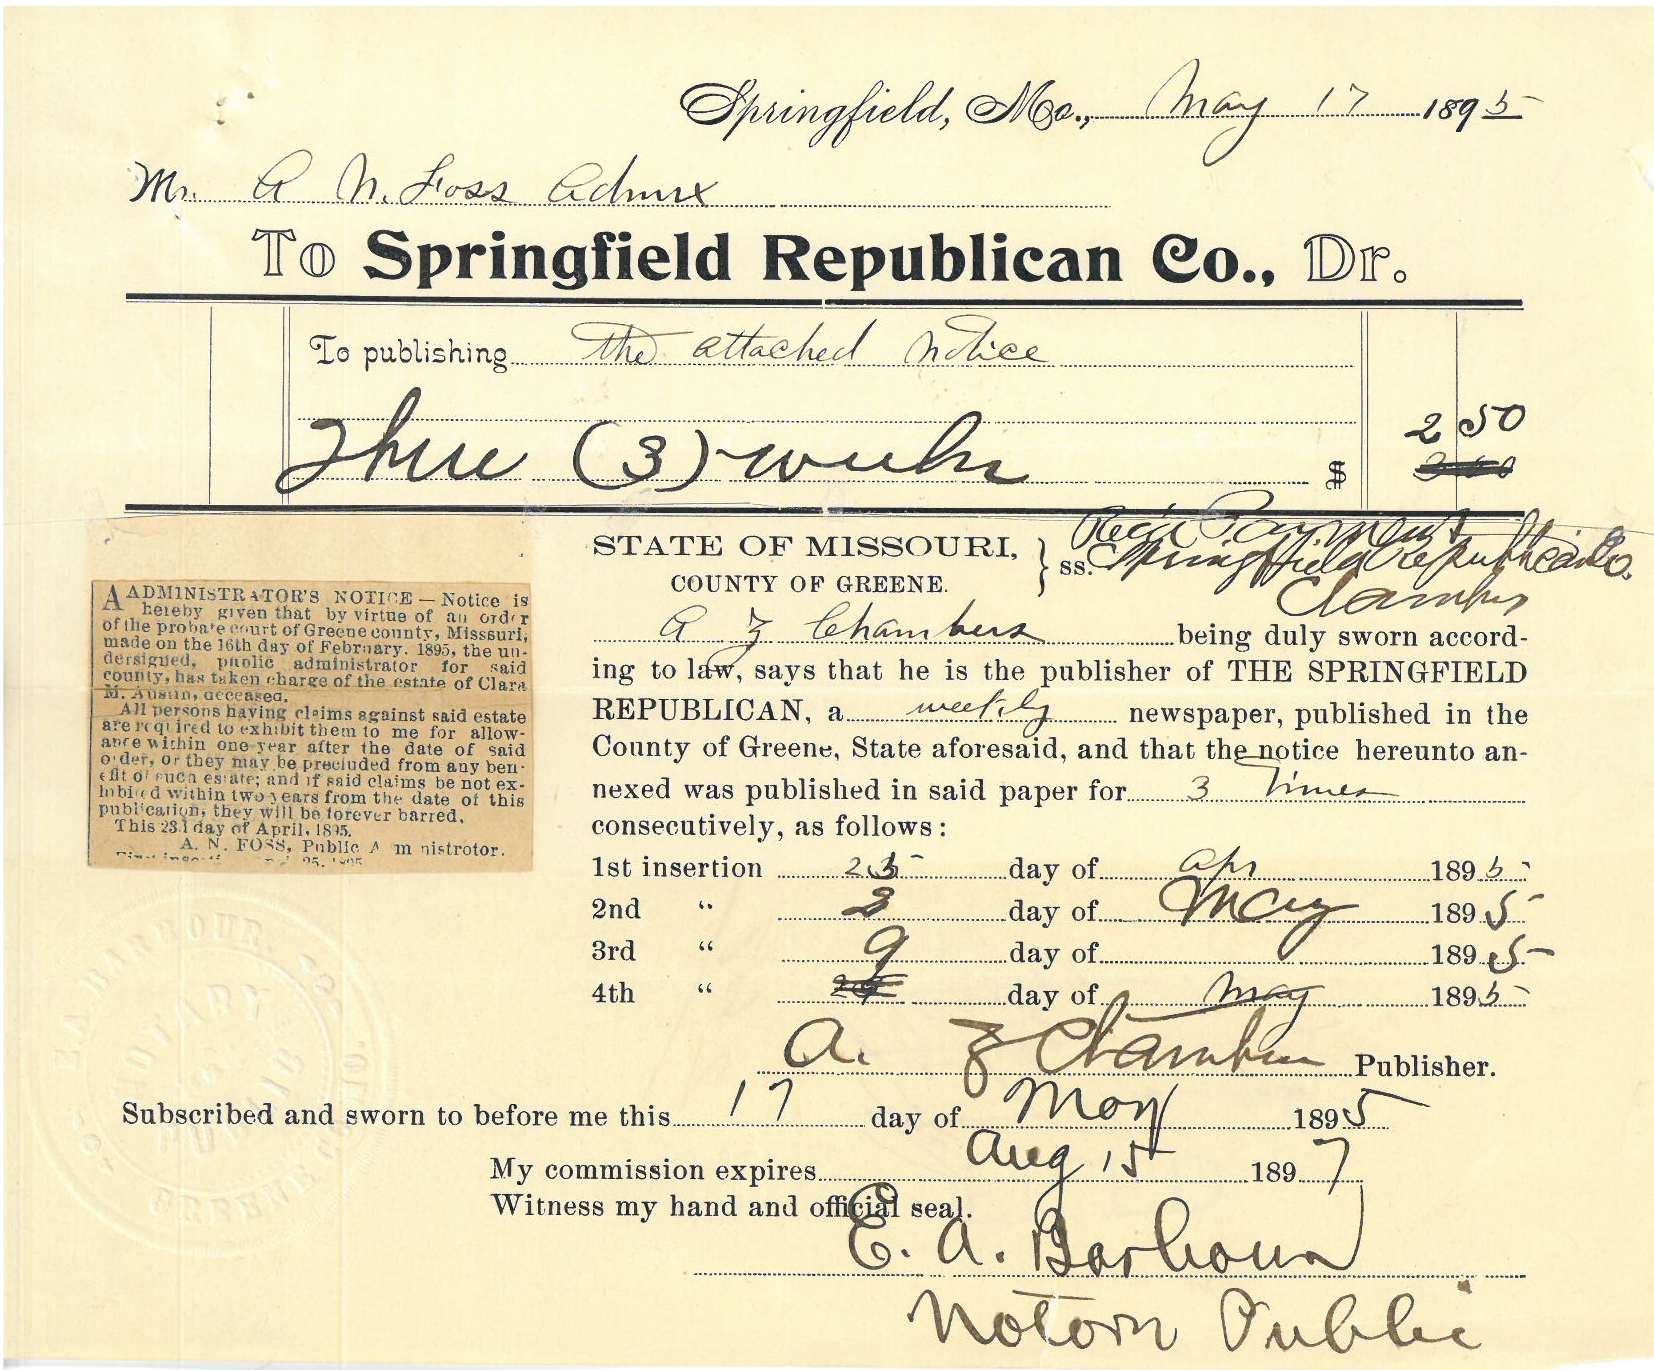 Springfield, Mo., May 17 1895
Mr. A N. Foss Admx
To Springfield Republican Co., Dr.
To publishing the attached notice
2 50
Three (3) weeks $
Rec'd Payment
STATE OF MISSOURI, } ss. Springfield Republican Co.
COUNTY OF GREENE.
A Z Chambers being duly sworn accord-
ing to law, says that he is the publisher of THE SPRINGFIELD
REPUBLICAN, a weekly newspaper, published in the
County of Greene, State aforesaid, and that the notice hereunto an-
nexed was published in said paper for 3 Times
consecutively, as follows:
1st insertion 25 day of Apr 1895
2nd " 2 day of May 1895
3rd " 9 day of 1895
4th " day of May 1895
A. Z Chambers Publisher.
Subscribed and sworn to before me this 17 day of May 1895
My commission expires Aug 15 1897
Witness my hand and official seal.
E. A. Barbour
Notary Public
A ADMINISTRATOR'S NOTICE — Notice is
hereby given that by virtue of an order
of the probate court of Greene county, Misssuri,
made on the 16th day of February. 1895, the un-
dersigned, public administrator for said
county, has taken charge of the estate of Clara
M. Austin, deceased.
All persons having claims against said estate
are required to exhibit them to me for allow-
ance within one year after the date of said
order, or they may be precluded from any ben-
efit of such estate; and if said claims be not ex-
hibited within two years from the date of this
publication, they will be forever barred.
This 23d day of April, 1895.
A. N. FOSS, Public Administrotor.
E. A. BARBOUR.
NOTARY
PUBLIC
GREENE CO.